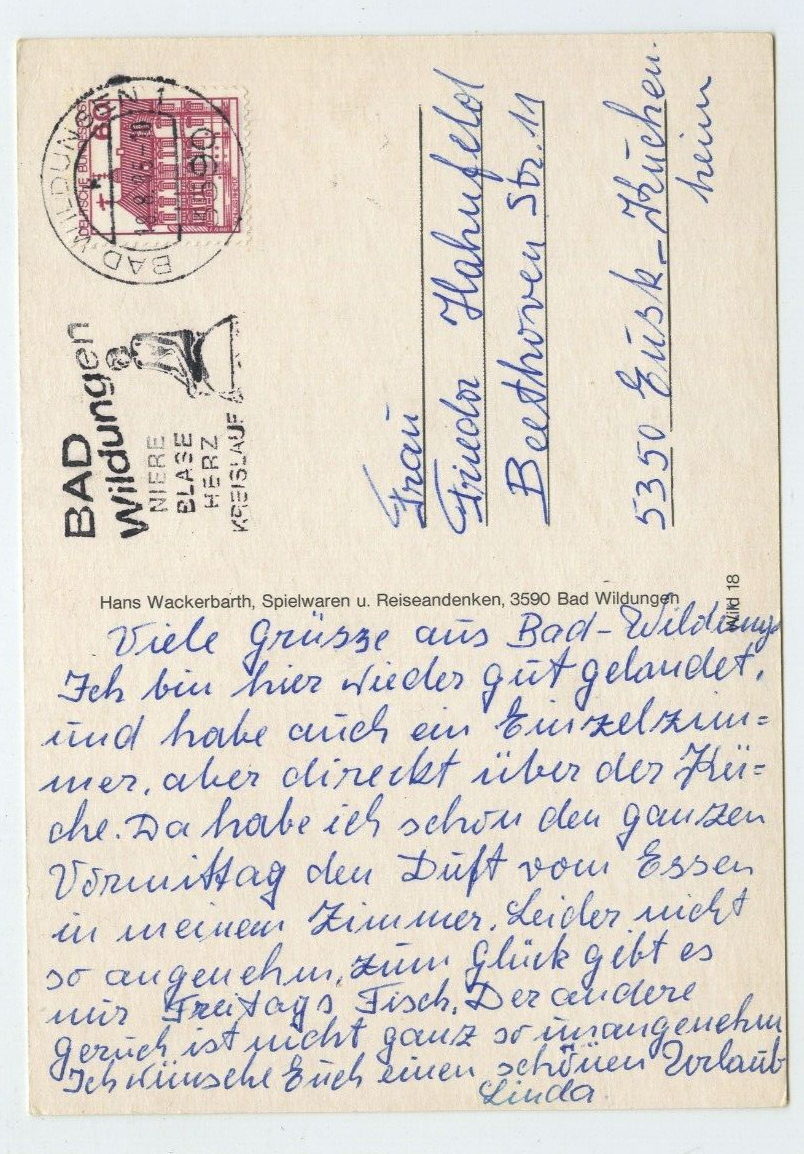 BAD WILDUNGEN 1
DEUTSCHE BUNDESPOST
60
3590
BAD
Wildungen
NIERE
BLASE
HERZ
KREISLAUF
Frau
Frieda Hahnfeld
Beethoven Str. 11
5350 Eusk-Kuchen-
heim
Hans Wackerbarth, Spielwaren u. Reiseandenken, 3590 Bad Wildungen
Wild 18
Viele Grüsze aus Bad-Wildungen
Ich bin hier wieder gut gelandet,
und habe auch ein Einzelzim=
mer, aber direckt über der Kü=
che. Da habe ich schon den ganzen
Vormittag den Duft vom Essen
in meinem Zimmer. Leider nicht
so angenehm, zum Glück gibt es
nur Freitags Fisch. Der andere
geruch ist nicht ganz so unangenehm
Ich wünsche Euch einen schönen Urlaub
Linda.